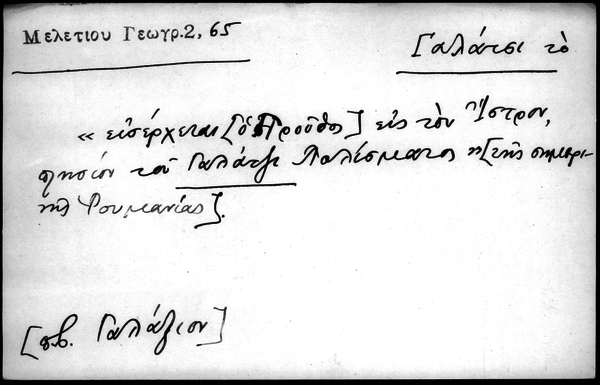 Μελετίου Γεωγρ. 2, 65
Γαλάτσι τὸ
« εἰσέρχεται [ὁ Προῦθος] εἰς τὸν Ἴστρον,
πλησίον τοῦ Γαλάτζι Παλίσματος » [τῆς σημερι-
νῆς Ῥουμανίας].
[πβ. Γαλάζιον]